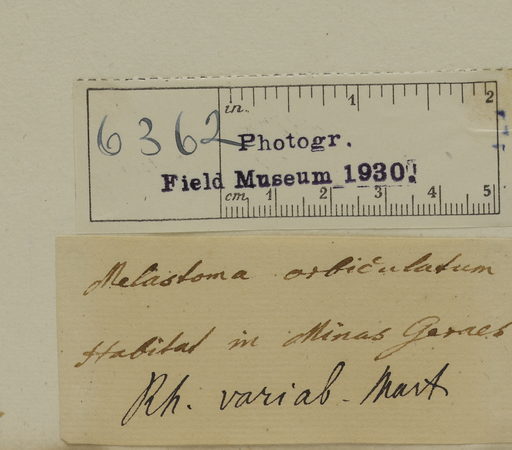 in. 1 2
6362 Photogr.
Field Museum 1930.
cm 1 2 3 4 5
Melastoma orbiculatum
Habitat in Minas Geraes
Rh. variab. Mart